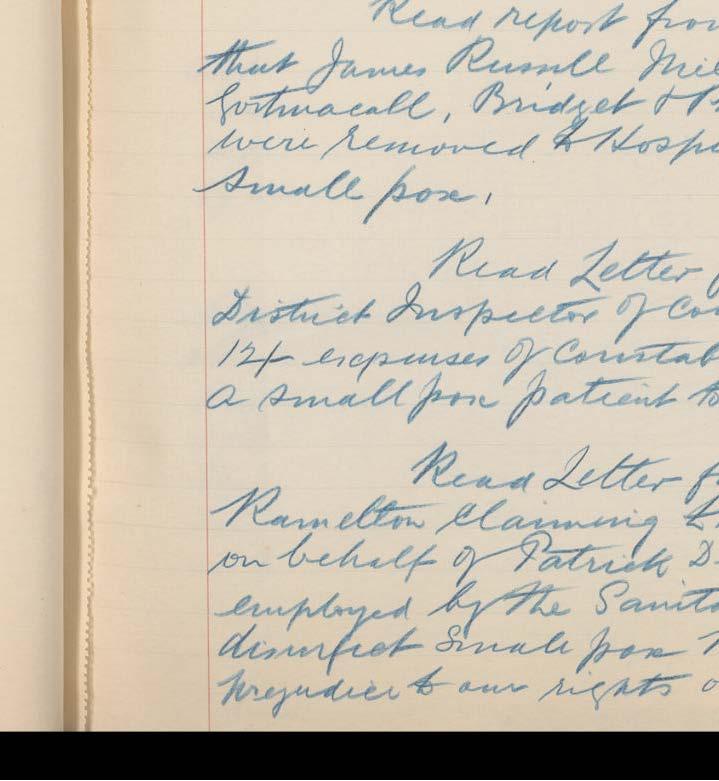 Read report from
that James Russell
Gortmacall, Bridget &
were removed to Hosp
Small pox.
Read Letter f
District Inspector of Con
12/- expenses of Constab
a small pox patient to
Read Letter f
Ramelton Claiming
on behalf of Patrick D
employed by the Sanita
disinfect Small pox
prejudice to our rights o